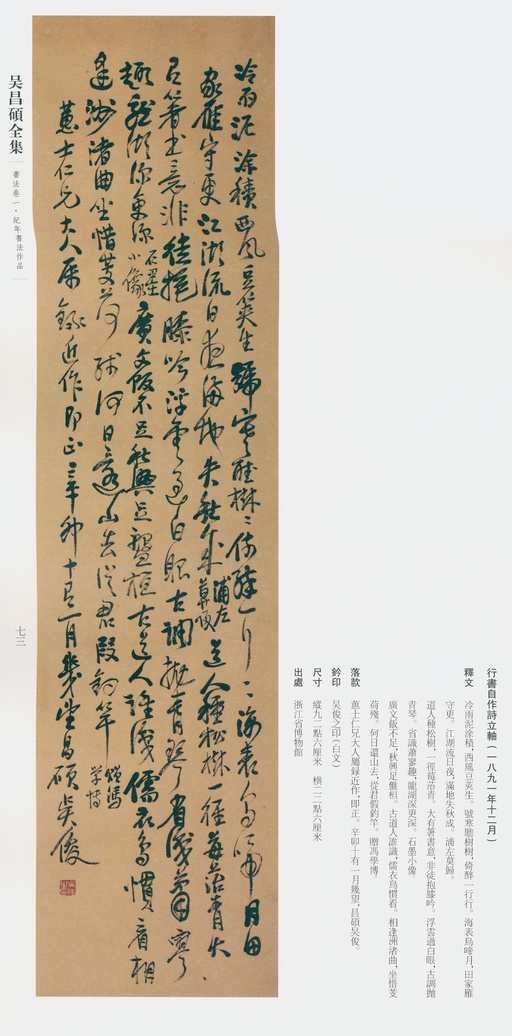 行書自作詩立軸（一八九一年十二月）
釋文 冷雨泥涂積，西風豆莢生。號寒聽樹樹，倚醉一行行。海表烏啼月，田家雁
守更。江湖流日夜，滿地失秋成。浦左莫歸。
道人種松樹，一徑莓苔青。大有箸書意，非徒抱膝吟。浮雲過白眼，古調抛
青琴。省識蕭寥趣，龍湖深更深。石墨小像。
廣文飯不足，秋興足盤桓。古道人誰識，儒衣烏慣看。相逢洲渚曲，坐惜芰
荷殘。何日還山去，從君假釣竿。贈馮學博。
落款 蕙士仁兄大人屬録近作，即正。辛卯十有一月幾望，昌碩吴俊。
鈐印 吴俊之印（白文）
尺寸 縱九二點六厘米 横二二點六厘米
出處 浙江省博物館
冷雨泥涂積西風豆莢生號寒聽樹〻倚醉一行〻海表烏啼月田
家雁守更江湖流日夜滿地失秋成浦左莫歸道人種松樹一徑莓苔青大
有箸書意非徒抱膝吟浮雲過白眼古調抛青琴省識蕭寥
趣龍湖深更深石墨小像廣文飯不足秋興足盤桓古道人誰識儒衣烏慣看相
逢洲渚曲坐惜芰荷殘何日還山去從君假釣竿贈馮學博
蕙士仁兄大人屬録近作即正辛卯十有一月幾望昌碩吴俊
吴昌碩全集
書法卷一·紀年書法作品
七三